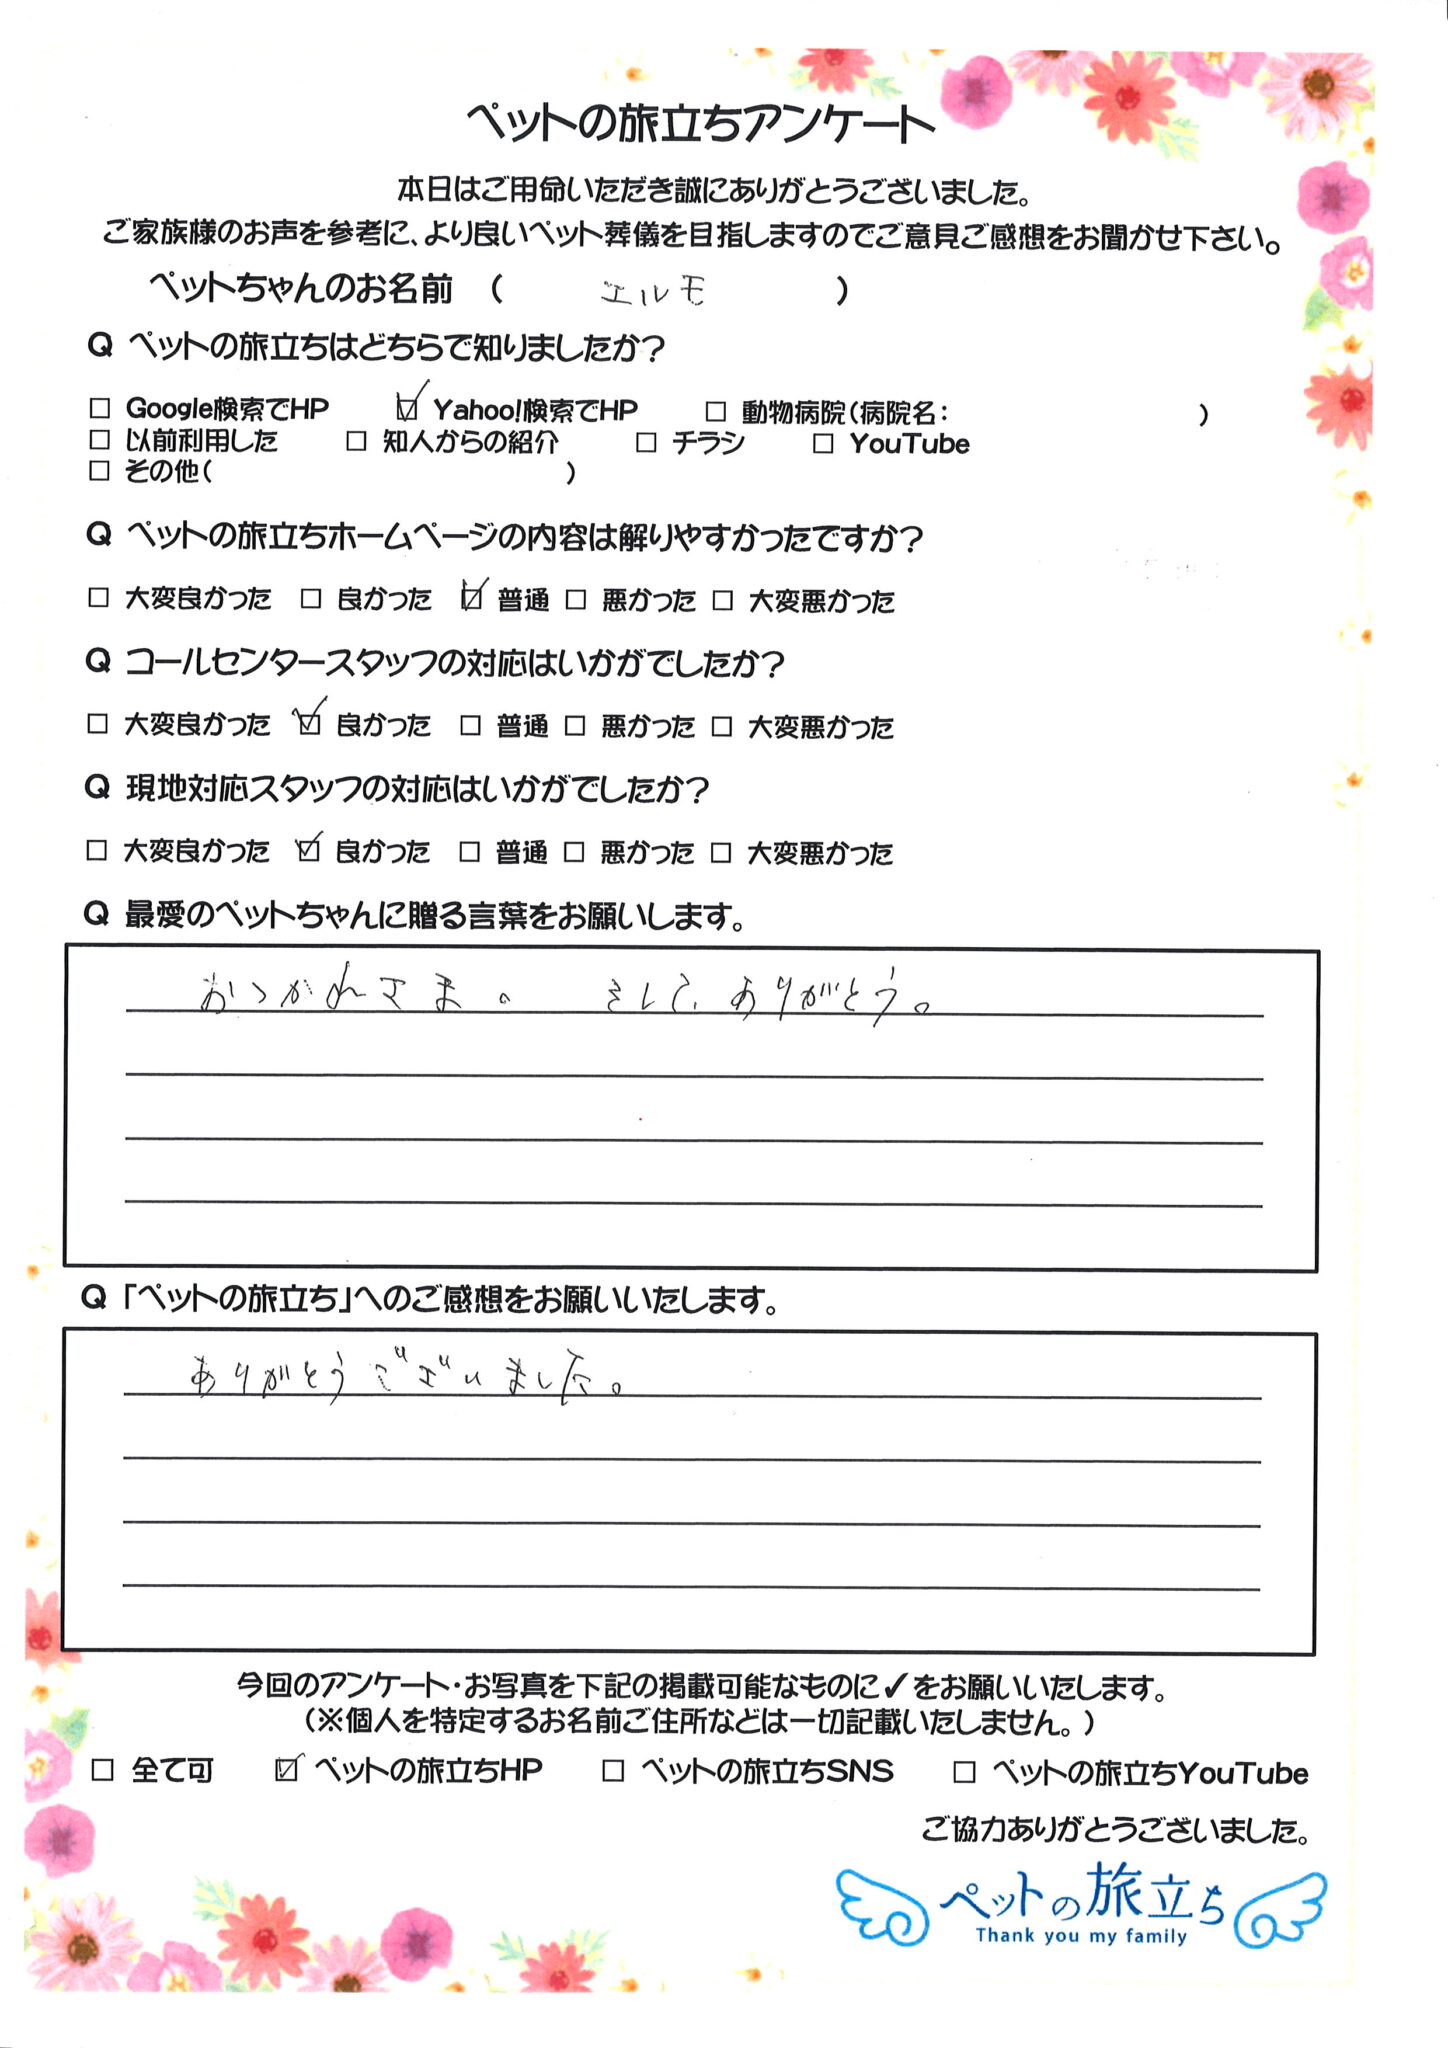 ペットの旅立ちアンケート
本日はご用命いただき誠にありがとうございました。
ご家族様のお声を参考に、より良いペット葬儀を目指しますのでご意見ご感想をお聞かせ下さい。
ペットちゃんのお名前 ( エルモ )
Q ペットの旅立ちはどちらで知りましたか?
□ Google検索でHP ☑ Yahoo!検索でHP □ 動物病院(病院名: )
□ 以前利用した □ 知人からの紹介 □ チラシ □ YouTube
□ その他( )
Q ペットの旅立ちホームページの内容は解りやすかったですか?
□ 大変良かった □ 良かった ☑ 普通 □ 悪かった □ 大変悪かった
Q コールセンタースタッフの対応はいかがでしたか?
□ 大変良かった ☑ 良かった □ 普通 □ 悪かった □ 大変悪かった
Q 現地対応スタッフの対応はいかがでしたか?
□ 大変良かった ☑ 良かった □ 普通 □ 悪かった □ 大変悪かった
Q 最愛のペットちゃんに贈る言葉をお願いします。
おつかれさま。 そして、ありがとう。
Q 「ペットの旅立ち」へのご感想をお願いいたします。
ありがとうございました。
今回のアンケート・お写真を下記の掲載可能なものに✓をお願いいたします。
(※個人を特定するお名前ご住所などは一切記載いたしません。)
□ 全て可 ☑ ペットの旅立ちHP □ ペットの旅立ちSNS □ ペットの旅立ちYouTube
ご協力ありがとうございました。
ペットの旅立ち
Thank you my family